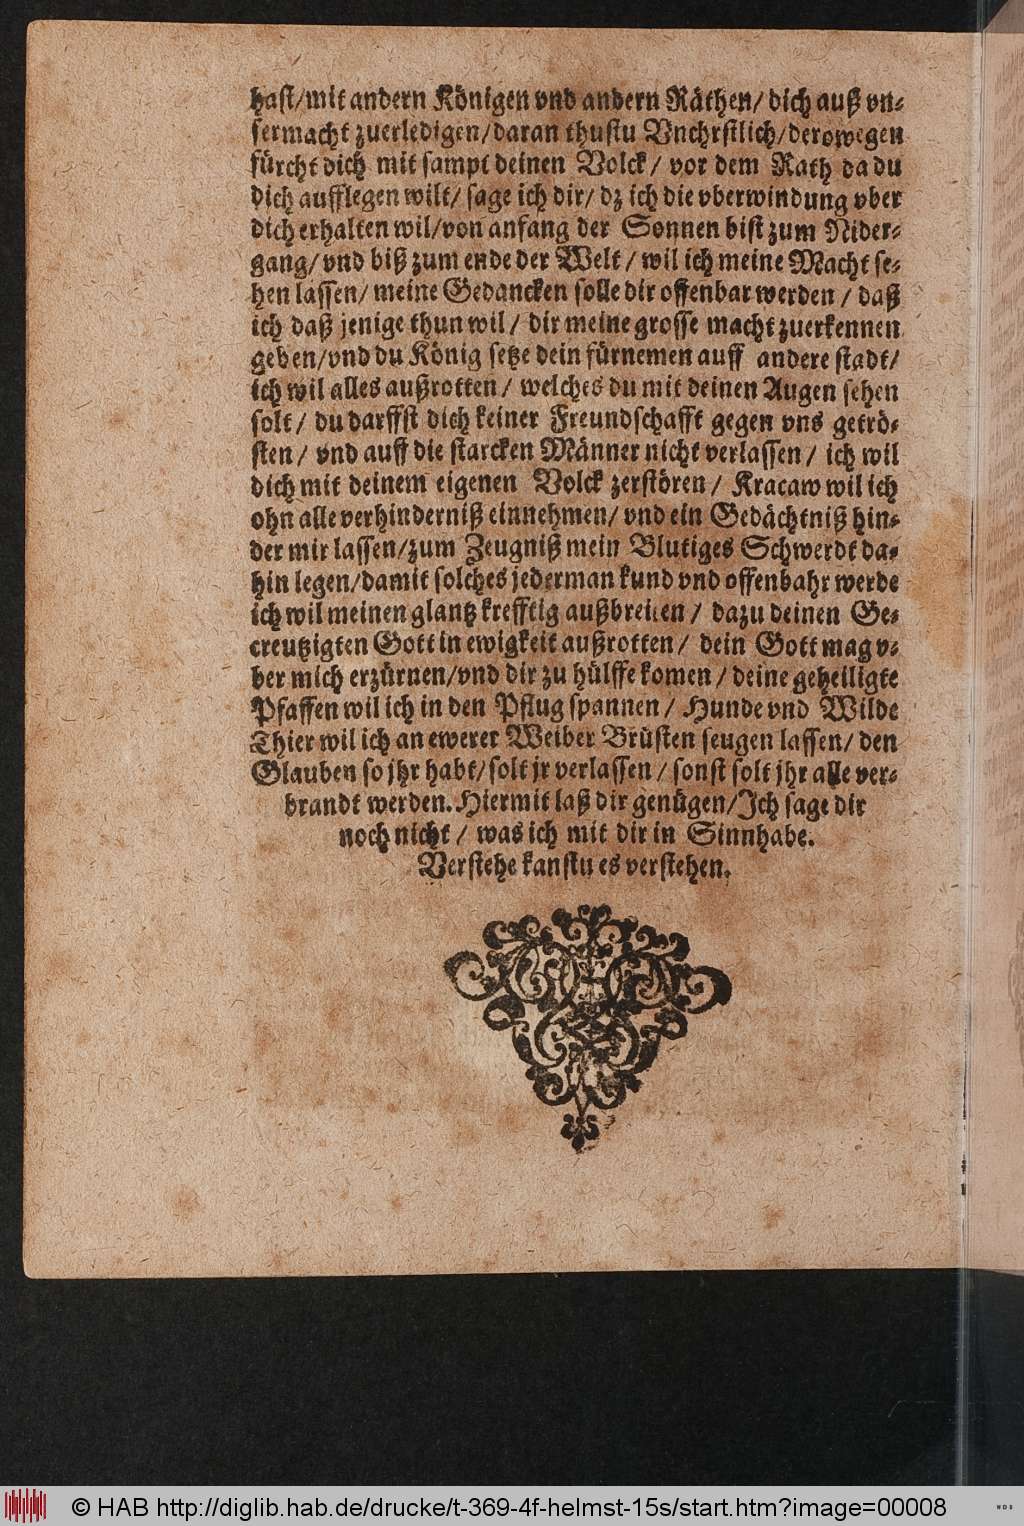 hast/mit andern Königen vnd andern Räthen/ dich auß vn-
sermacht zuerledigen/daran thustu Vnchrstlich/derowegen
fürcht dich mit sampt deinen Volck/ vor dem Rath da du
dich aufflegen wilt/ sage ich dir/ dz ich die vberwindung vber
dich erhalten wil/von anfang der Sonnen bist zum Nider-
gang/vnd biß zum ende der Welt/ wil ich meine Macht se-
hen lassen/ meine Gedancken solle dir offenbar werden/ daß
ich daß jenige thun wil/ dir meine grosse macht zuerkennen
geben/vnd du König setze dein fürnemen auff andere stadt/
ich wil alles außrotten/ welches du mit deinen Augen sehen
solt/ du darffst dich keiner Freundschafft gegen vns getrö-
sten/ vnd auff die starcken Männer nicht verlassen/ ich wil
dich mit deinem eigenen Volck zerstören/ Kracaw wil ich
ohn alle verhinderniß einnehmen/ vnd ein Gedächtniß hin-
der mir lassen/zum Zeugniß mein Blutiges Schwerdt da-
hin legen/damit solches jederman kund vnd offenbahr werde
ich wil meinen glantz krefftig außbreiten/ dazu deinen Ge-
creutzigten Gott in ewigkeit außrotten/ dein Gott mag v-
ber mich erzürnen/vnd dir zu hülffe komen/ deine geheiligte
Pfaffen wil ich in den Pflug spannen/ Hunde vnd Wilde
Thier wil ich an ewerer Weiber Brüsten seugen lassen/ den
Glauben so jhr habt/ solt jr verlassen/ sonst solt jhr alle ver-
brandt werden. Hiermit laß dir genügen/Ich sage dir
noch nicht/ was ich mit dir in Sinnhabe.
Verstehe kanstu es verstehen.
© HAB http://diglib.hab.de/drucke/t-369-4f-helmst-15s/start.htm?image=00008
WDB